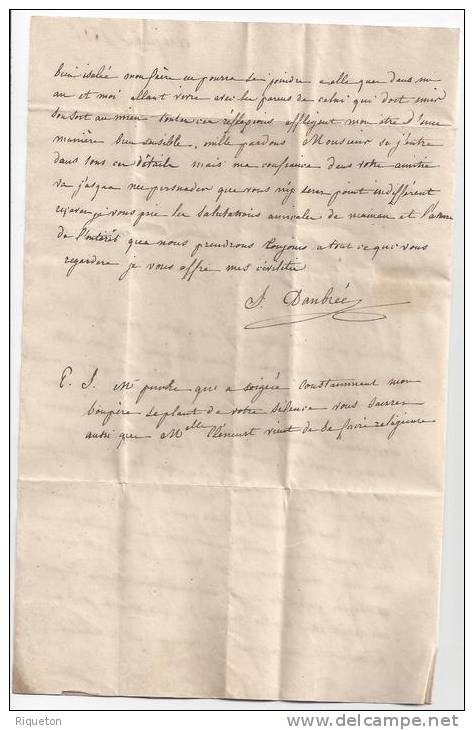 bien isolée mon frère ne pourra se joindre a elle que dans un
an et moi allant vivre avec les parens de celui qui doit unir
son sort au mien toutes ces réflexions affligent mon être d'une
manière bien sensible, mille pardons Monsieur si j'entre
dans tous ces détails mais ma confiance dans votre amitié
va jusqua me persuader que vous n'y serez point indifférent
recevez je vous prie les salutations amicales de maman et
de l'intérêt que nous prendrons toujours a tout ce qui vous
regardera je vous offre mes civilités
J. Daubrée
P. S. Mr que a soigné constamment mon
beaupère se plaint de votre silence vous saurez
aussi que Melle Clément vient de se faire religieuse
Riqueton
delcampe.net